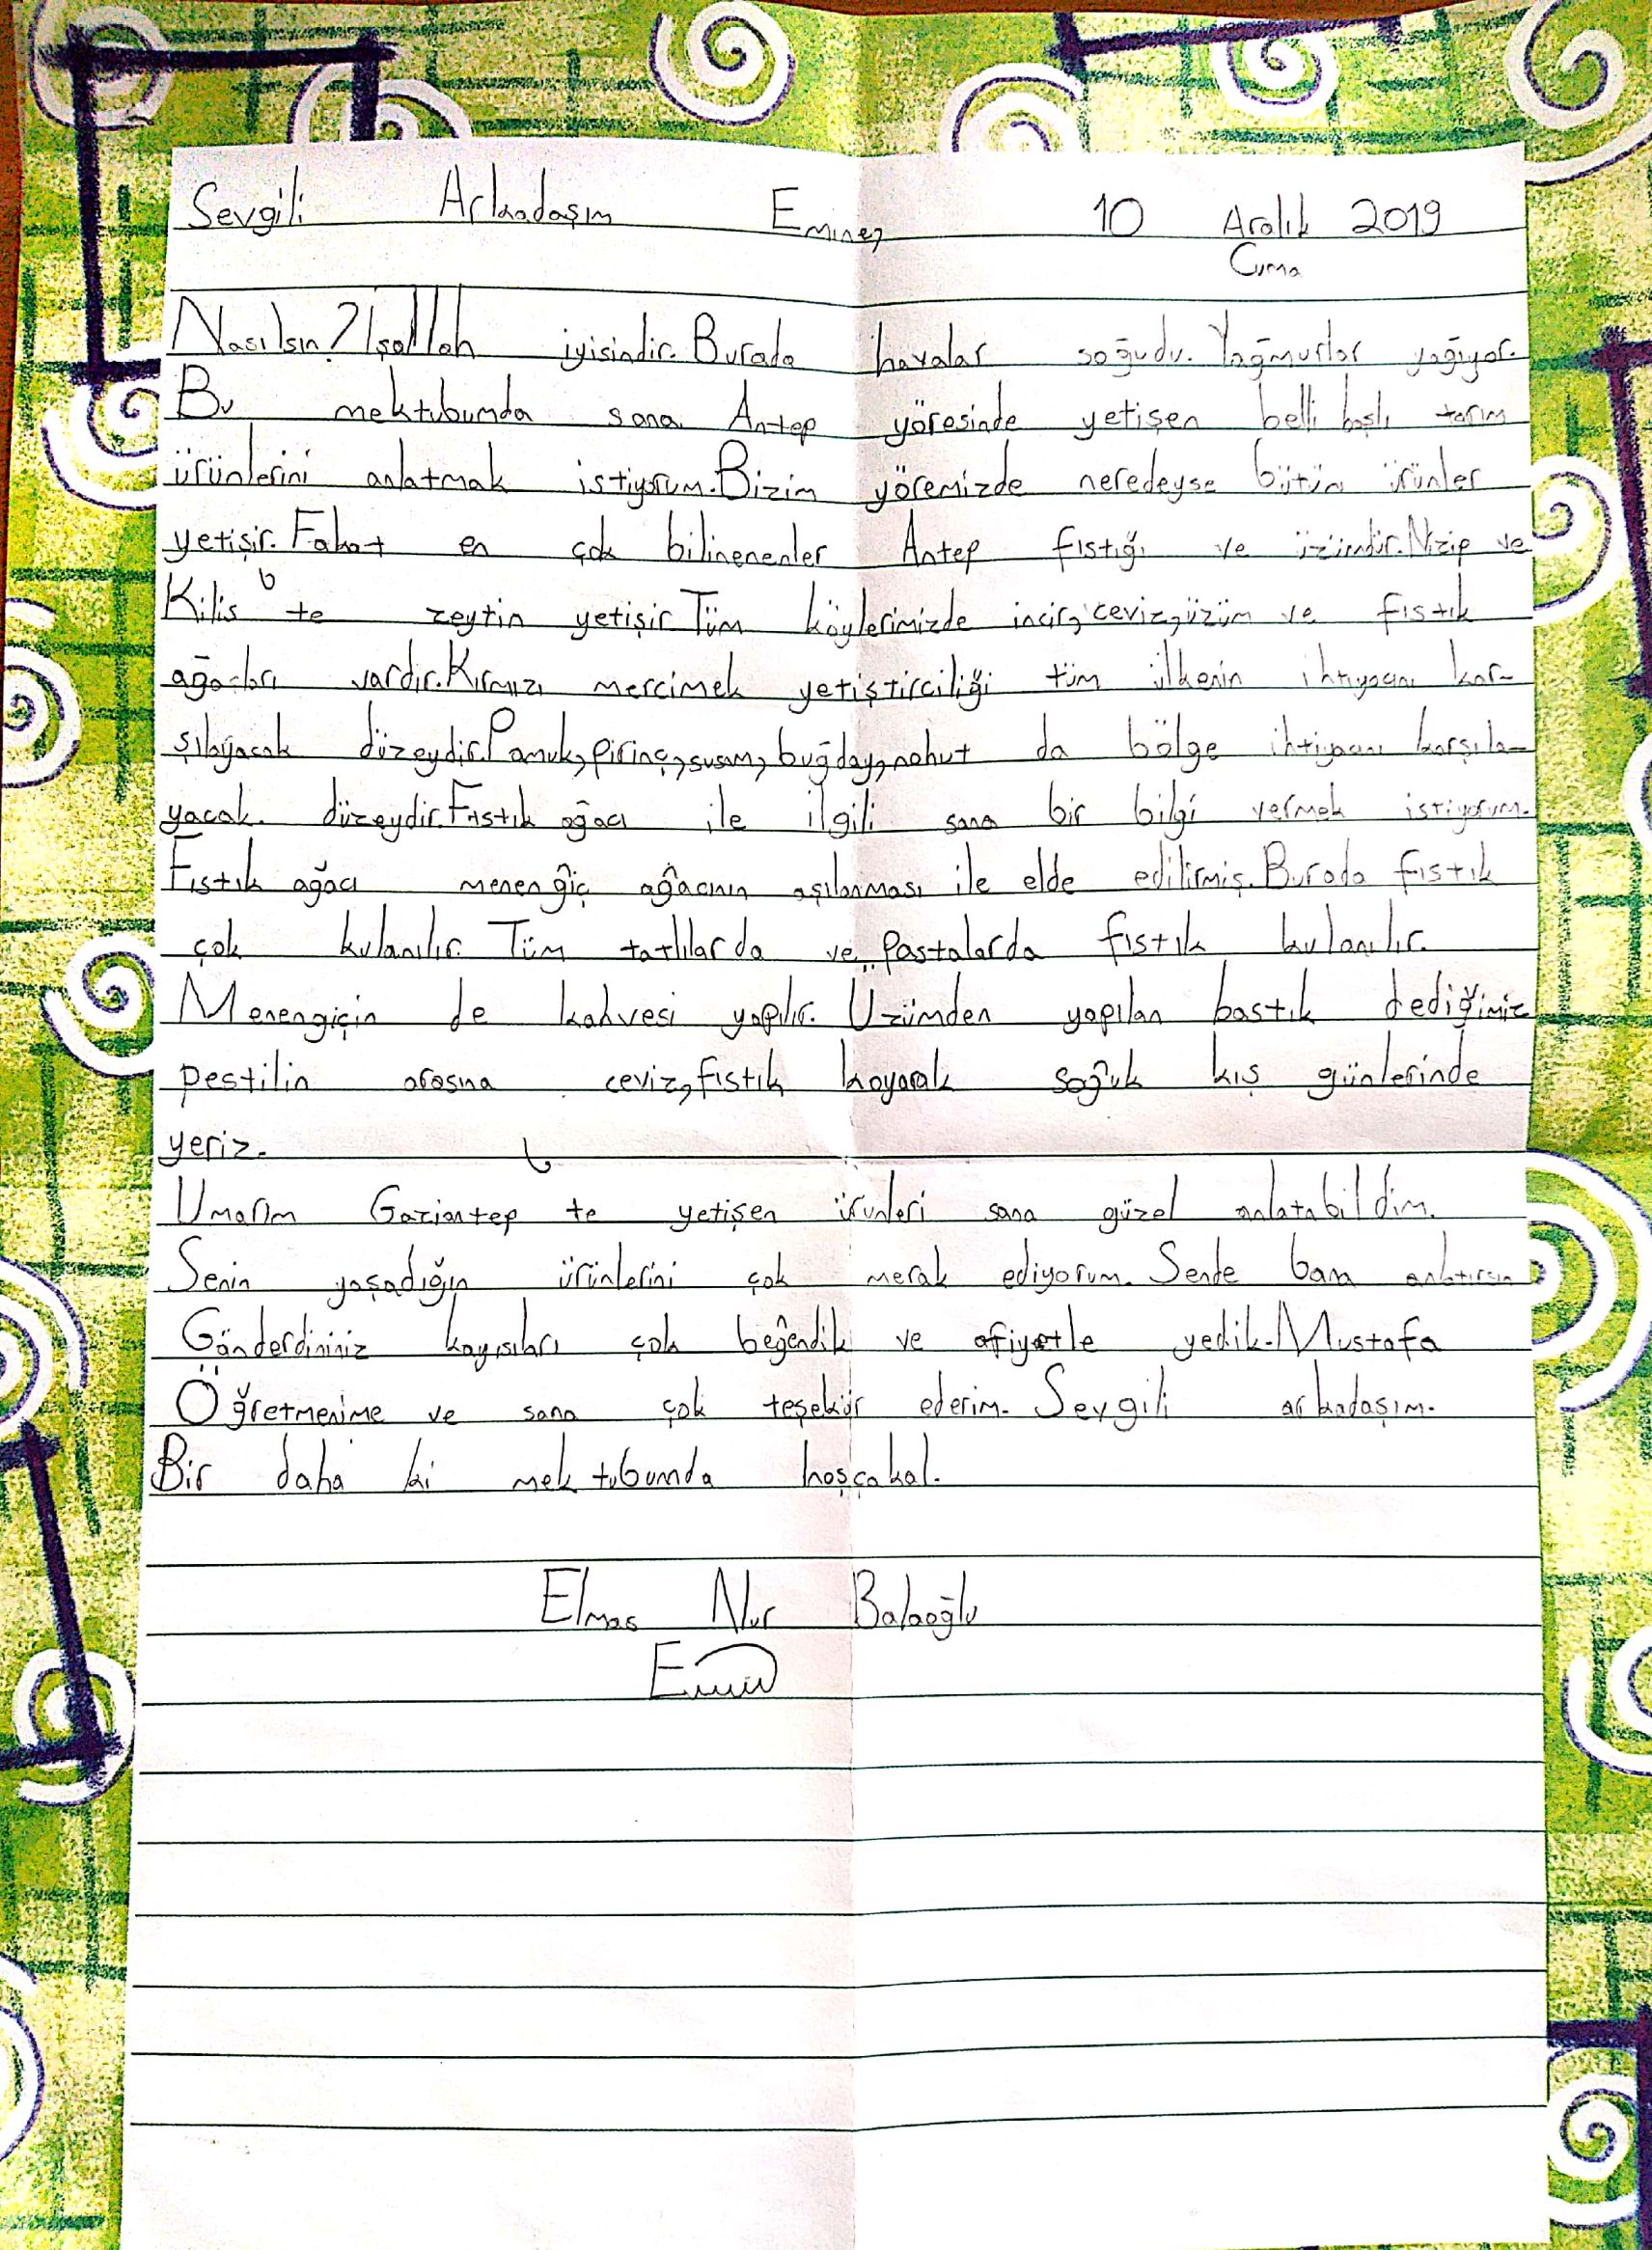 Sevgili Arkadaşım Emine, 10 Aralık 2019
Cuma
Nasılsın? İşallah iyisindir. Burada havalar soğudu. Yağmurlar yağıyor.
Bu mektubumda sana Antep yöresinde yetişen belli başlı tarım
ürünlerini anlatmak istiyorum. Bizim yöremizde neredeyse bütün ürünler
yetişir. Fakat en çok bilinenenler Antep fıstığı ve üzümdür. Nizip ve
Kilis'te zeytin yetişir. Tüm köylerimizde incir, ceviz, üzüm ve fıstık
ağaçları vardır. Kırmızı mercimek yetiştirciliği tüm ülkenin ihtiyacını kar-
şılayacak düzeydir. Pamuk, pirinç, susam, buğday, nohut da bölge ihtiyacını karşıla-
yacak düzeydir. Fıstık ağacı ile ilgili sana bir bilgi vermek istiyorum.
Fıstık ağacı menengiç ağacının aşılanması ile elde edilirmiş. Burada fıstık
çok kulanılır. Tüm tatlılarda ve pastalarda fıstık kulanılır.
Menengiçin de kahvesi yapılır. Üzümden yapılan bastık dediğimiz
pestilin arasına ceviz, fıstık koyarak soğuk kış günlerinde
yeriz.
Umarım Gaziantep'te yetişen ürünleri sana güzel anlatabildim.
Senin yaşadığın ürünlerini çok merak ediyorum. Sende bana anlatırsın
Gönderdininiz kayısıları çok beğendik ve afiyetle yedik. Mustafa
Öğretmenime ve sana çok teşekür ederim. Sevgili arkadaşım.
Bir daha ki mektubumda hoşçakal.
Elmas Nur Balaoğlu